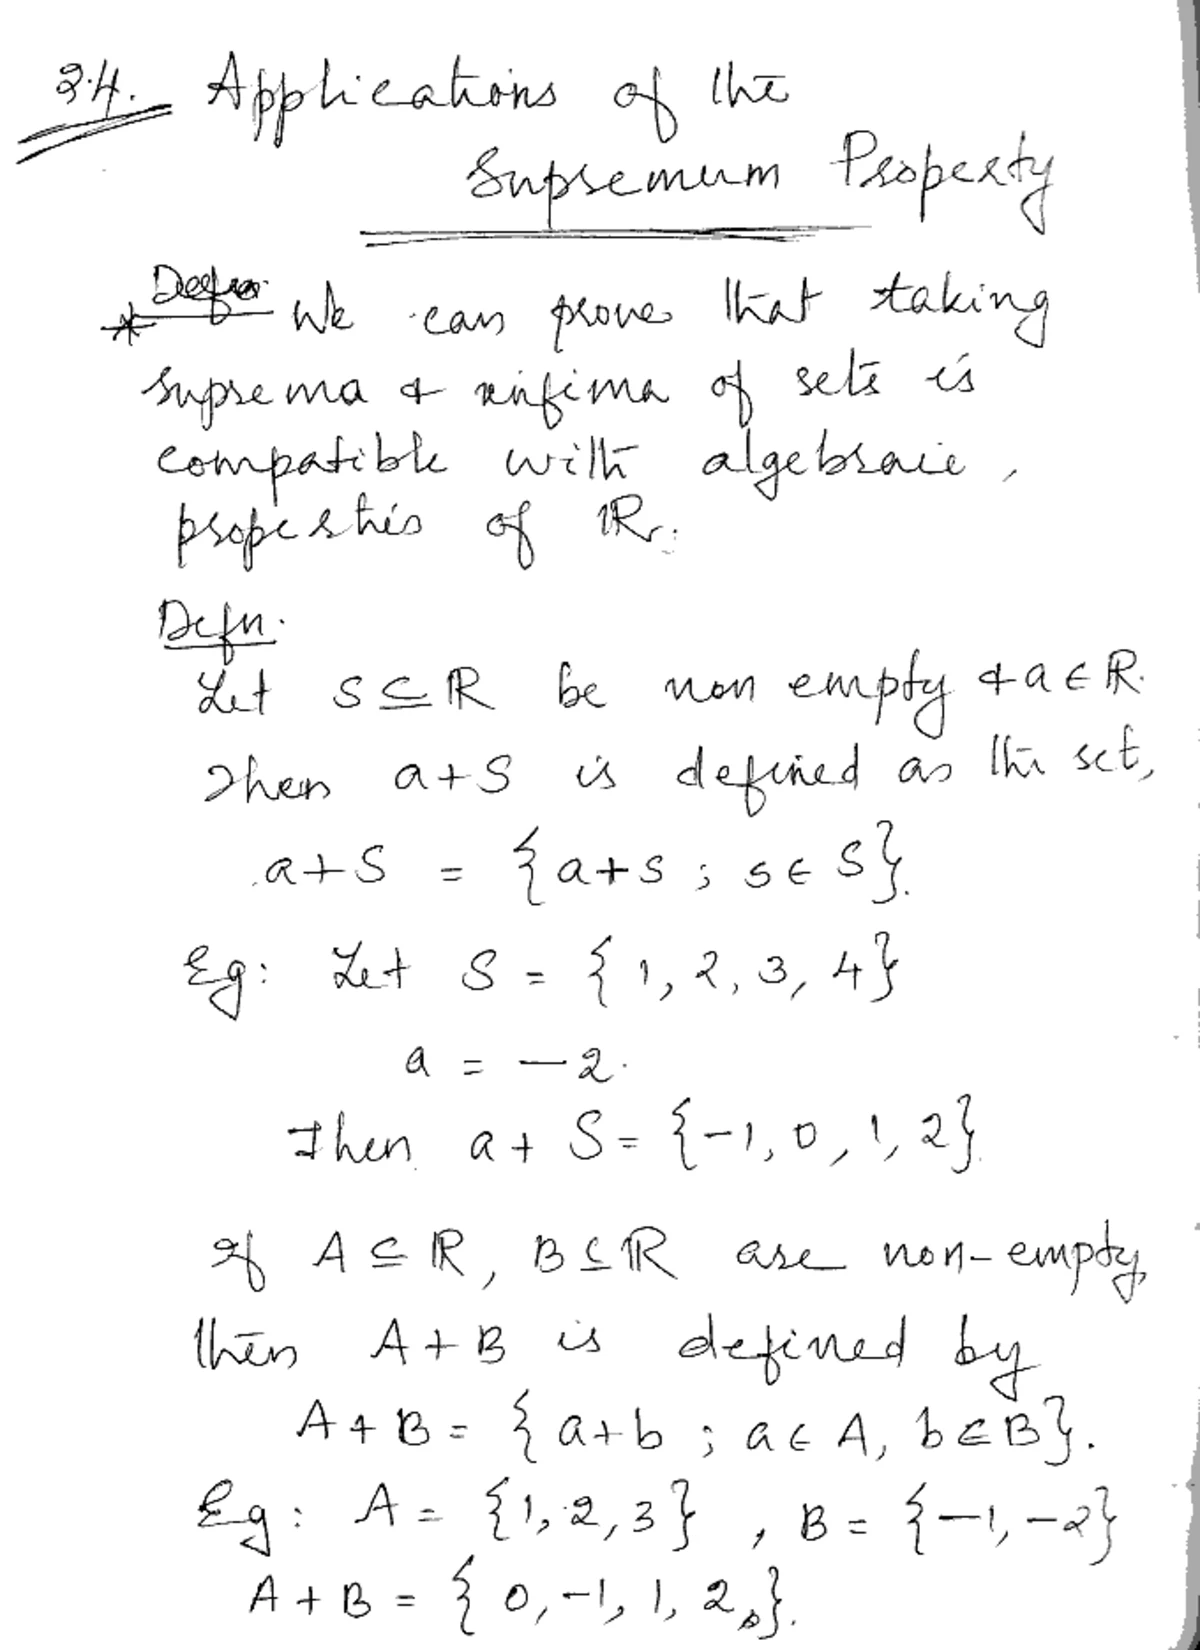 2.4. Applications of the
Supremum Property
* We can prove that taking
suprema & infima of sets is
compatible with algebraic
properties of ℝ.
Defn.
Let S ⊆ ℝ be non empty & a ∈ ℝ.
Then a + S is defined as the set,
a + S = {a + s ; s ∈ S}.
Eg: Let S = {1, 2, 3, 4}
a = -2.
Then a + S = {-1, 0, 1, 2}.
If A ⊆ ℝ, B ⊆ ℝ are non-empty,
then A + B is defined by
A + B = {a + b ; a ∈ A, b ∈ B}.
Eg: A = {1, 2, 3}, B = {-1, -2}
A + B = {0, -1, 1, 2}.